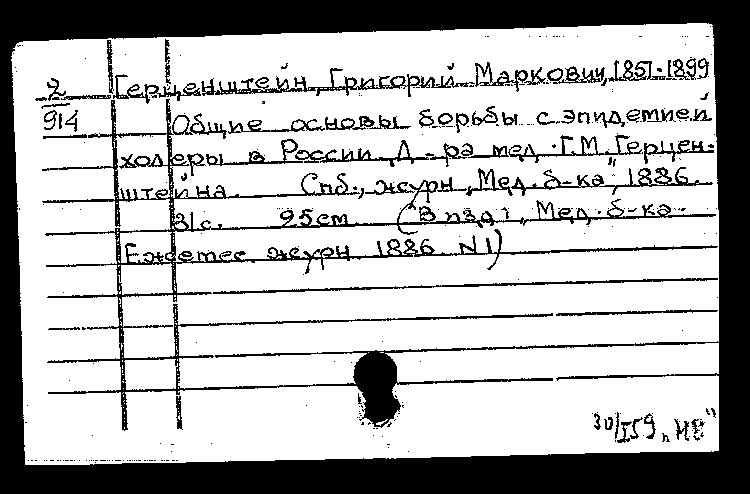 2 Герценштейн, Григорий Маркович, 1851-1899
914 Общие основы борьбы с эпидемией
холеры в России Д-ра мед. Г.М. Герцен-
штейна. Спб., журн „Мед. б-ка", 1886.
31с. 25см (В изд: „Мед. б-ка-
Ежемес. журн 1886 N1)
30/I59 „МБ"